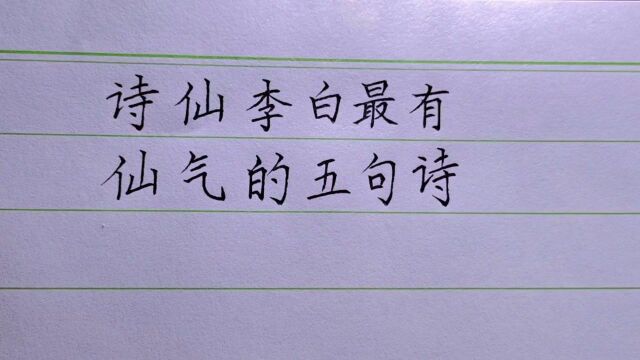 诗仙李白最有
仙气的五句诗